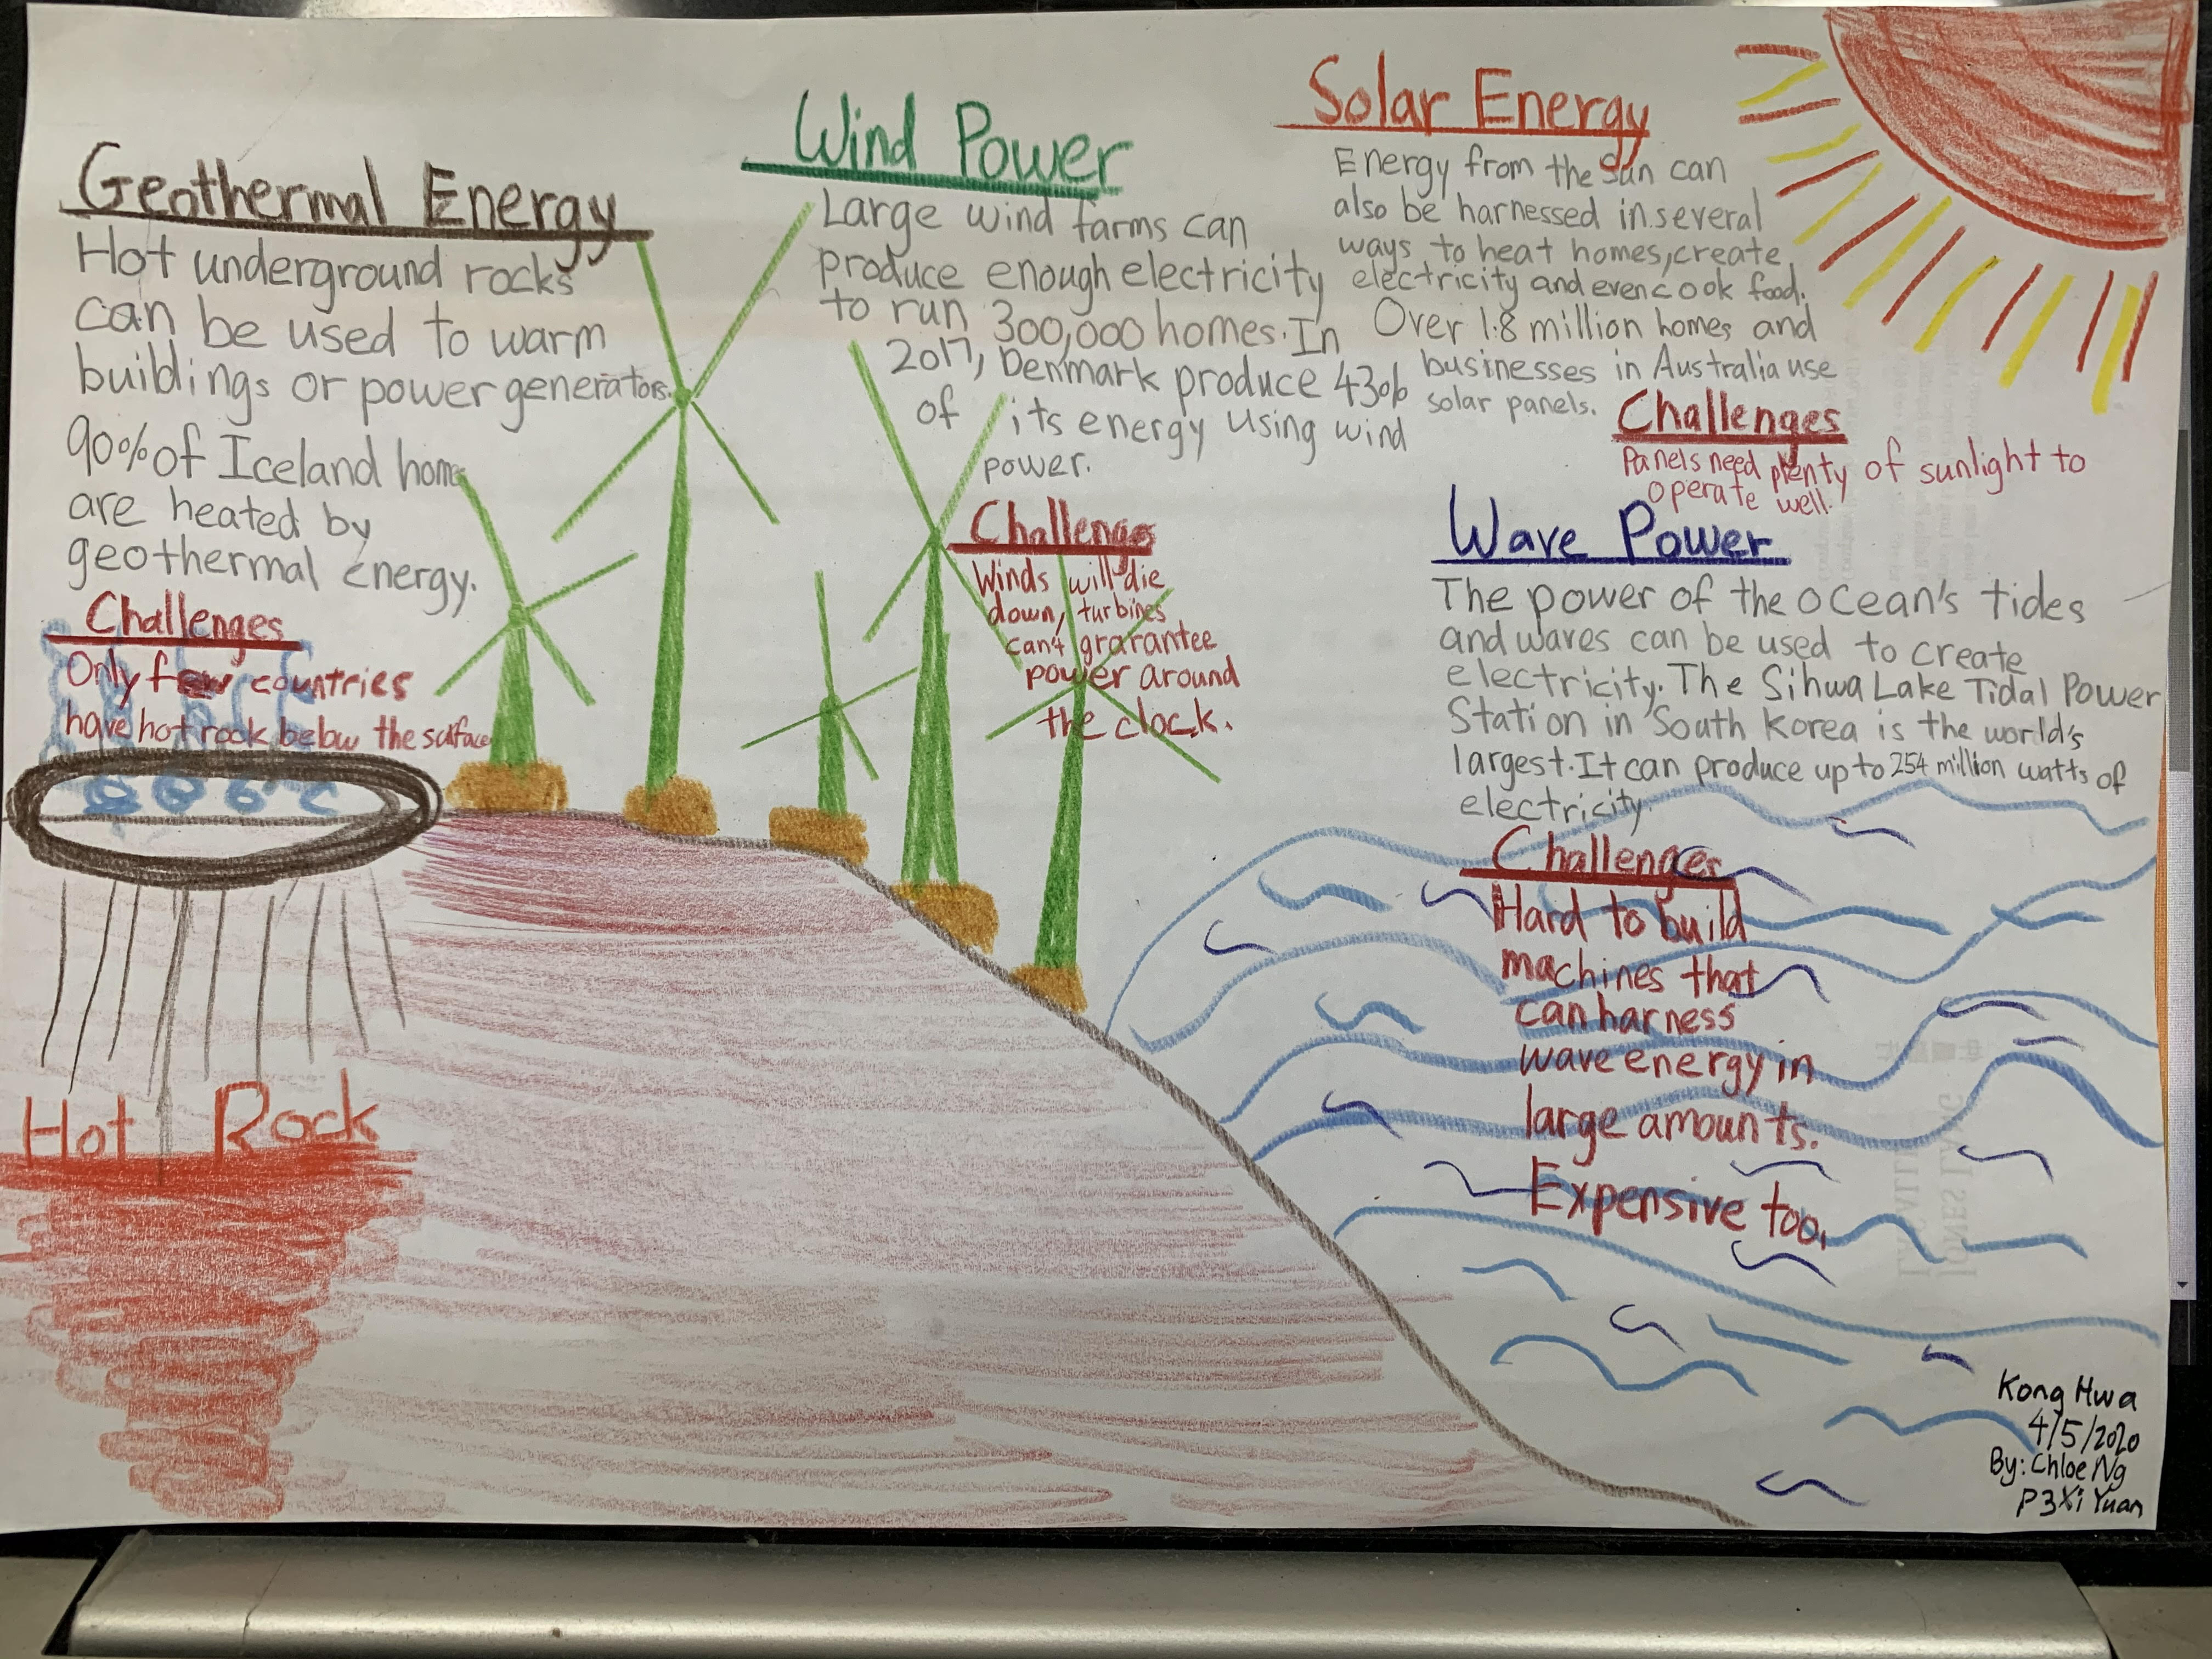 Geothermal Energy
Hot underground rocks
can be used to warm
buildings or power generators.
90% of Iceland home
are heated by
geothermal energy.
Challenges
Only few countries
have hot rock below the surface
Hot Rock
Wind Power
Large wind farms can
produce enough electricity
to run 300,000 homes. In
2017, Denmark produce 43%
of its energy using wind
power.
Challenges
Winds will die
down, turbines
can't grarantee
power around
the clock.
Solar Energy
Energy from the Sun can
also be harnessed in several
ways to heat homes, create
electricity and even cook food.
Over 1.8 million homes and
businesses in Australia use
solar panels.
Challenges
Panels need plenty of sunlight to
operate well.
Wave Power
The power of the ocean's tides
and waves can be used to create
electricity. The Sihwa Lake Tidal Power
Station in South Korea is the world's
largest. It can produce up to 254 million watts of
electricity.
Challenges
Hard to build
machines that
can harness
wave energy in
large amounts.
Expensive too.
Kong Hwa
4/5/2020
By: Chloe Ng
P3 Xi Yuan